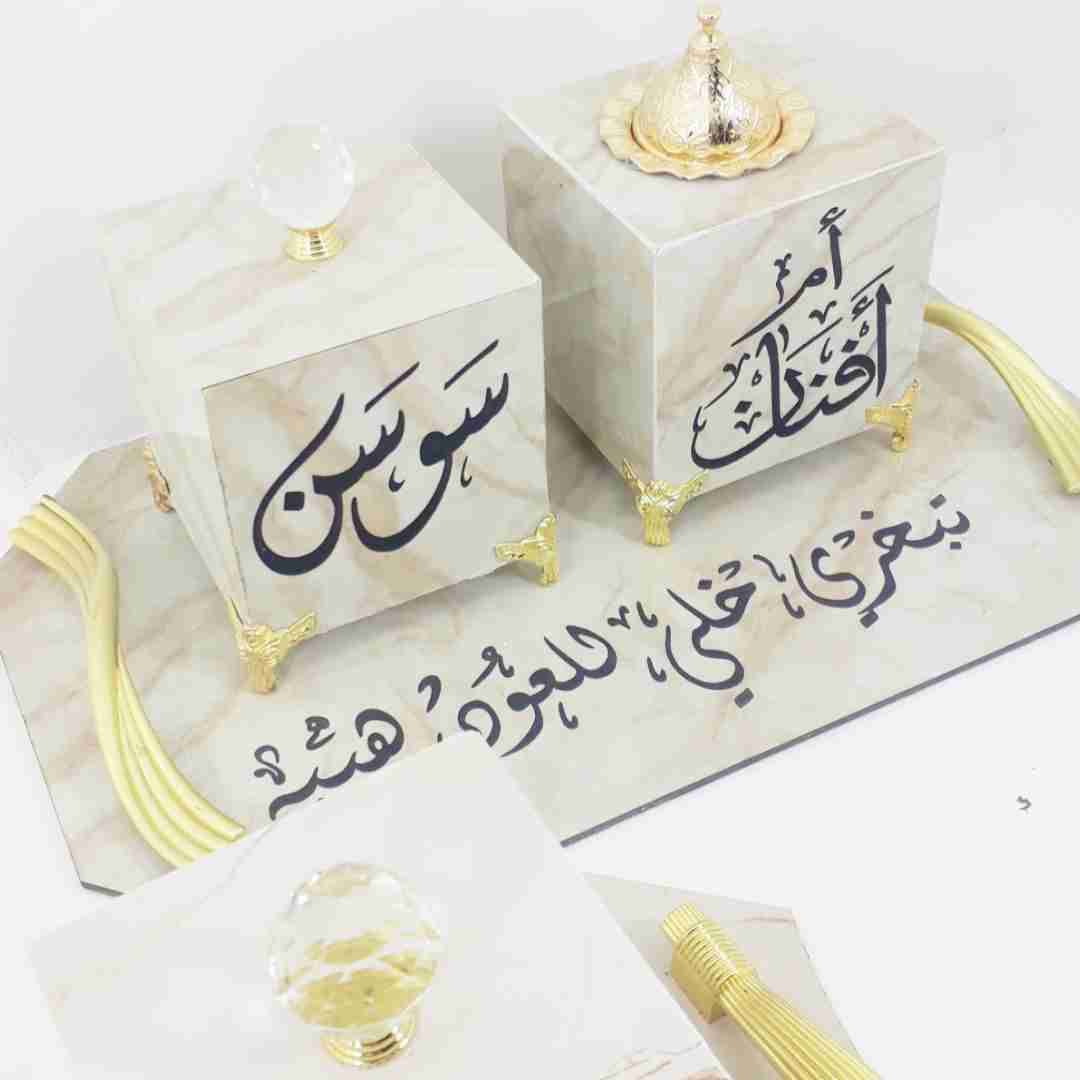 سوسن
أم
أفنان
بنخري خلي للعود هيبه